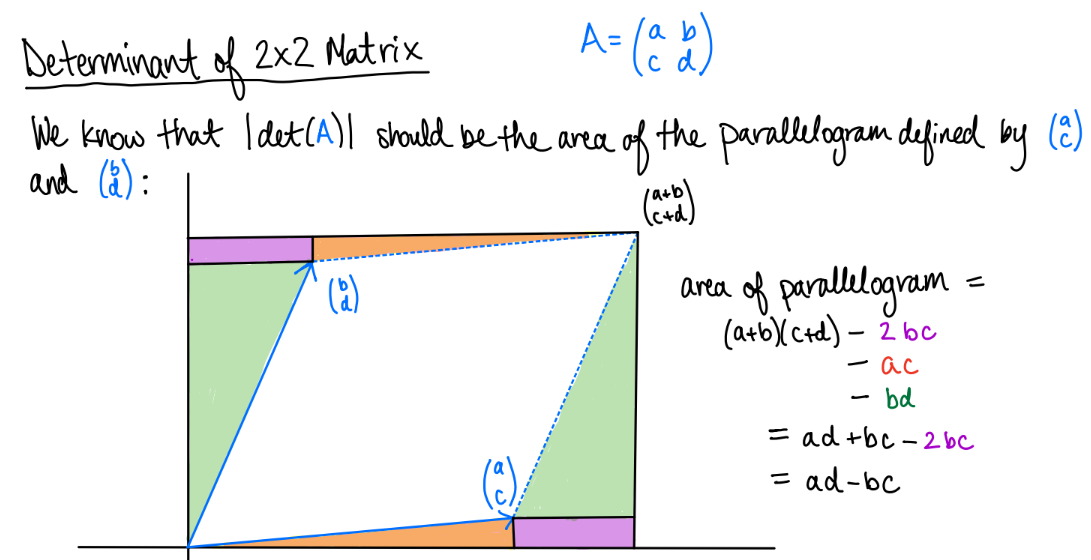 Determinant of 2x2 Matrix
A = (a b
c d)
We know that |det(A)| should be the area of the parallelogram defined by (a
c)
and (b
d) :
(a+b
c+d)
(b
d)
area of parallelogram =
(a+b)(c+d) - 2bc
- ac
- bd
= ad+bc-2bc
= ad-bc
(a
c)